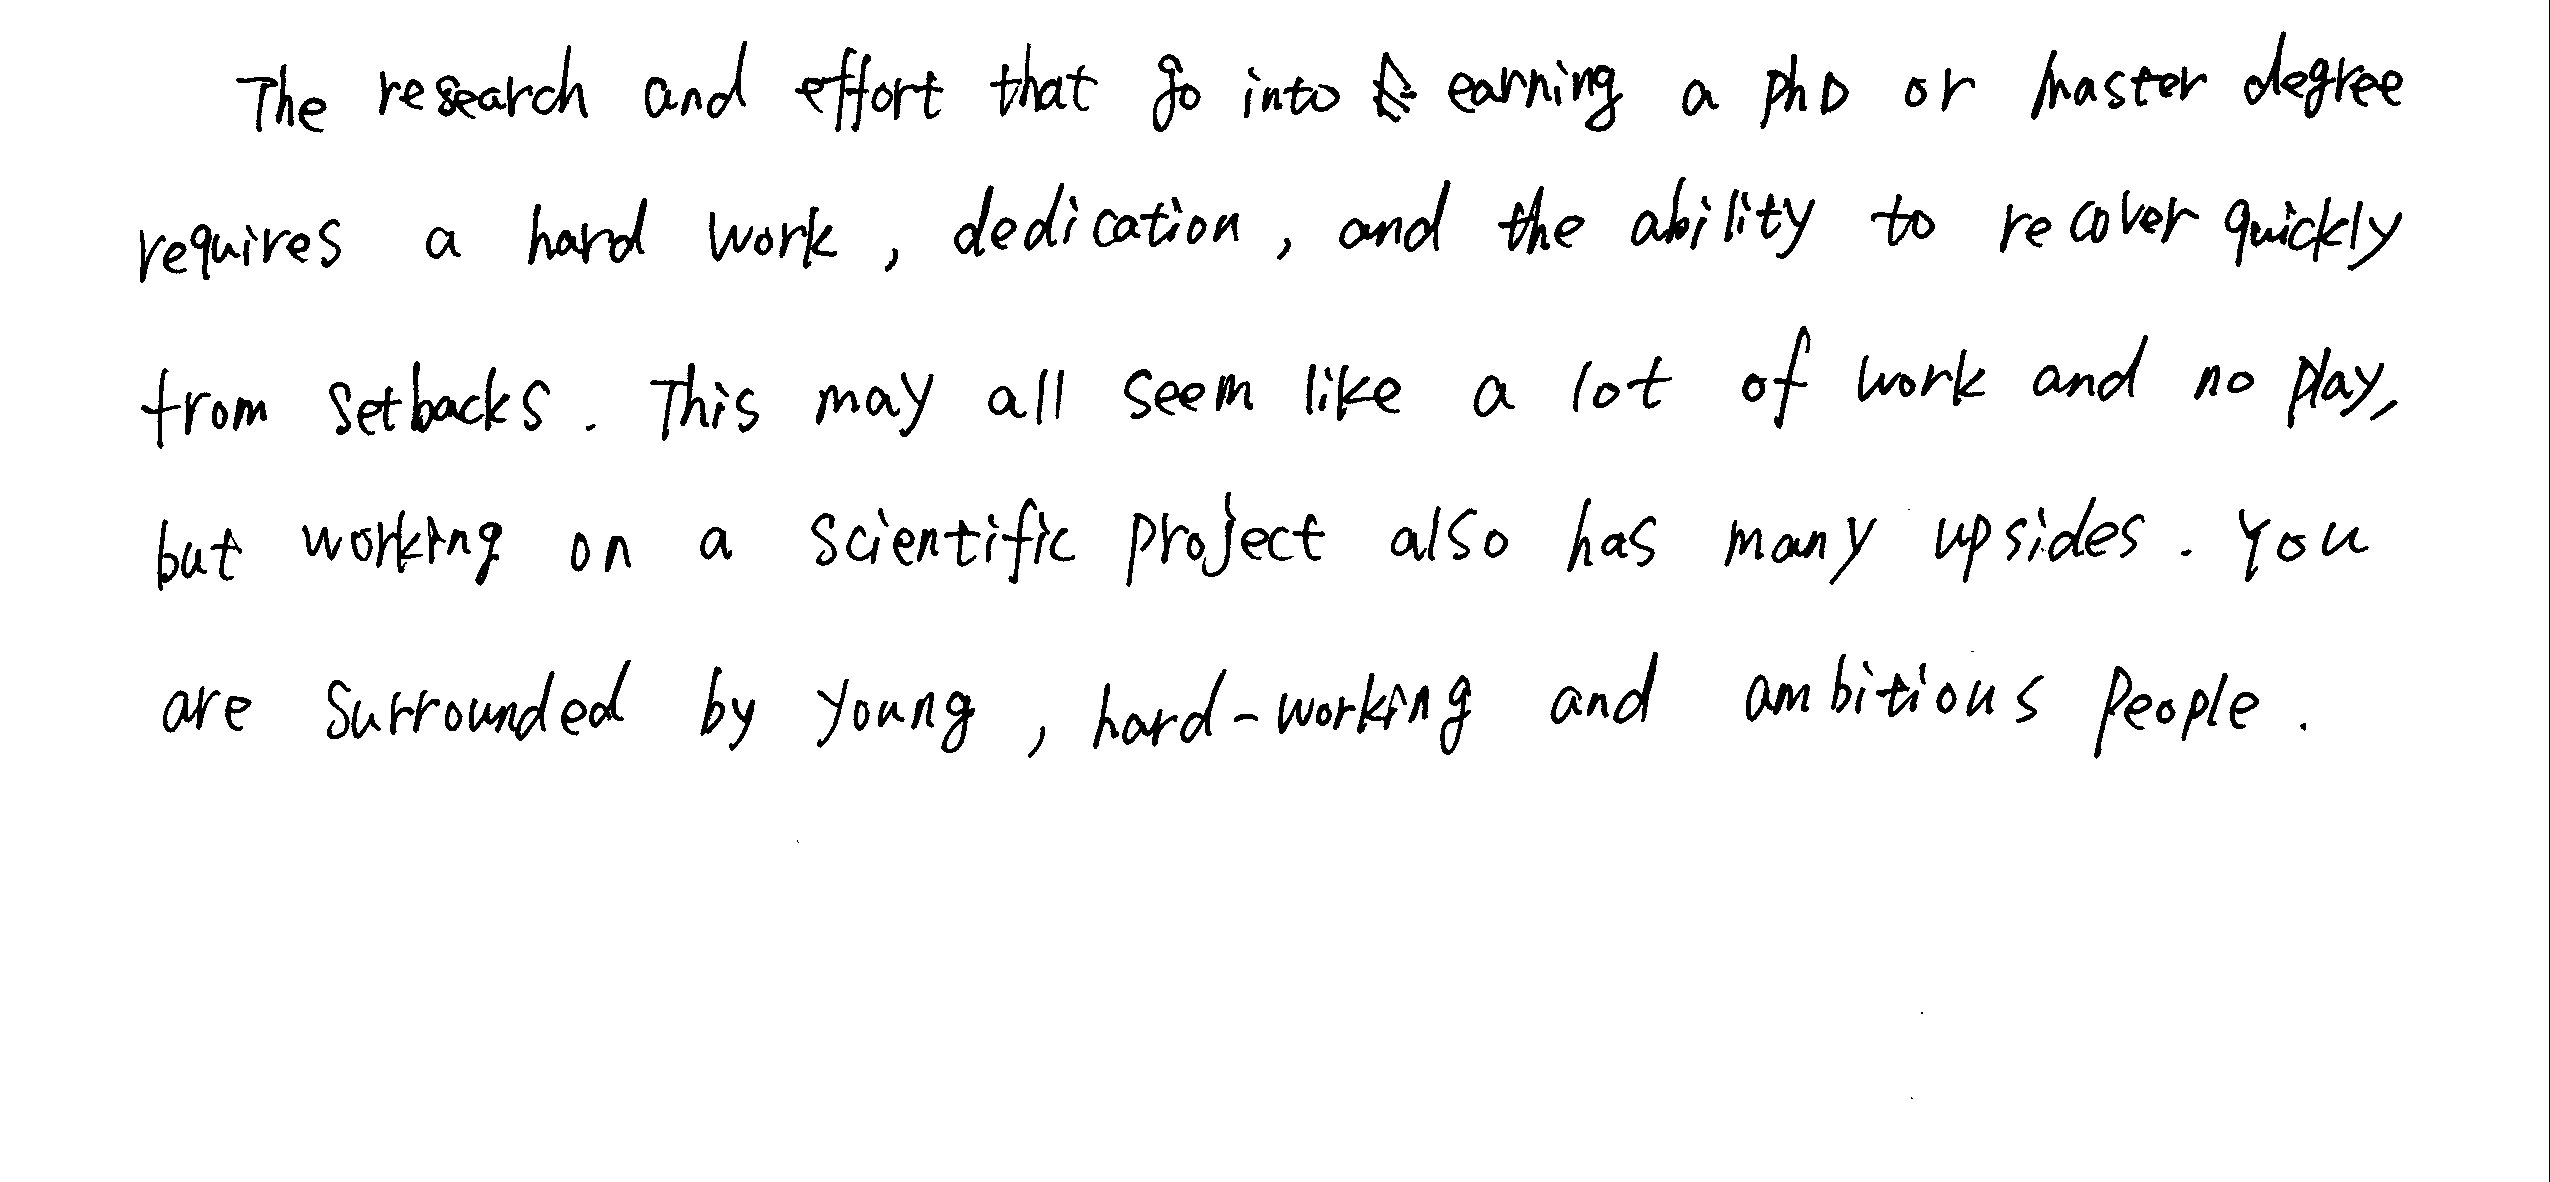 The research and effort that go into earning a PhD or master degree
requires a hard work, dedication, and the ability to recover quickly
from setbacks. This may all seem like a lot of work and no play,
but working on a scientific project also has many upsides. You
are surrounded by young, hard-working and ambitious people.